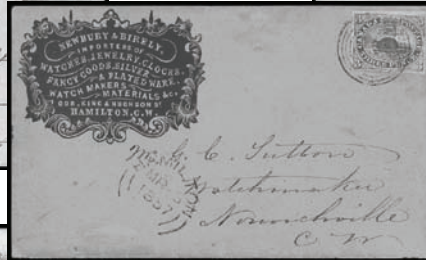 NEWBURY & BIRELY,
IMPORTERS OF
WATCHES, JEWELRY, CLOCKS,
FANCY GOODS, SILVER
& PLATED WARE,
WATCH MAKERS
MATERIALS &c.
COR. KING & HUGHSON ST
HAMILTON, C.W.
HAMILTON
MR
1857
Mr. C. C. Sutton
Watchmaker
Norwichville
C W